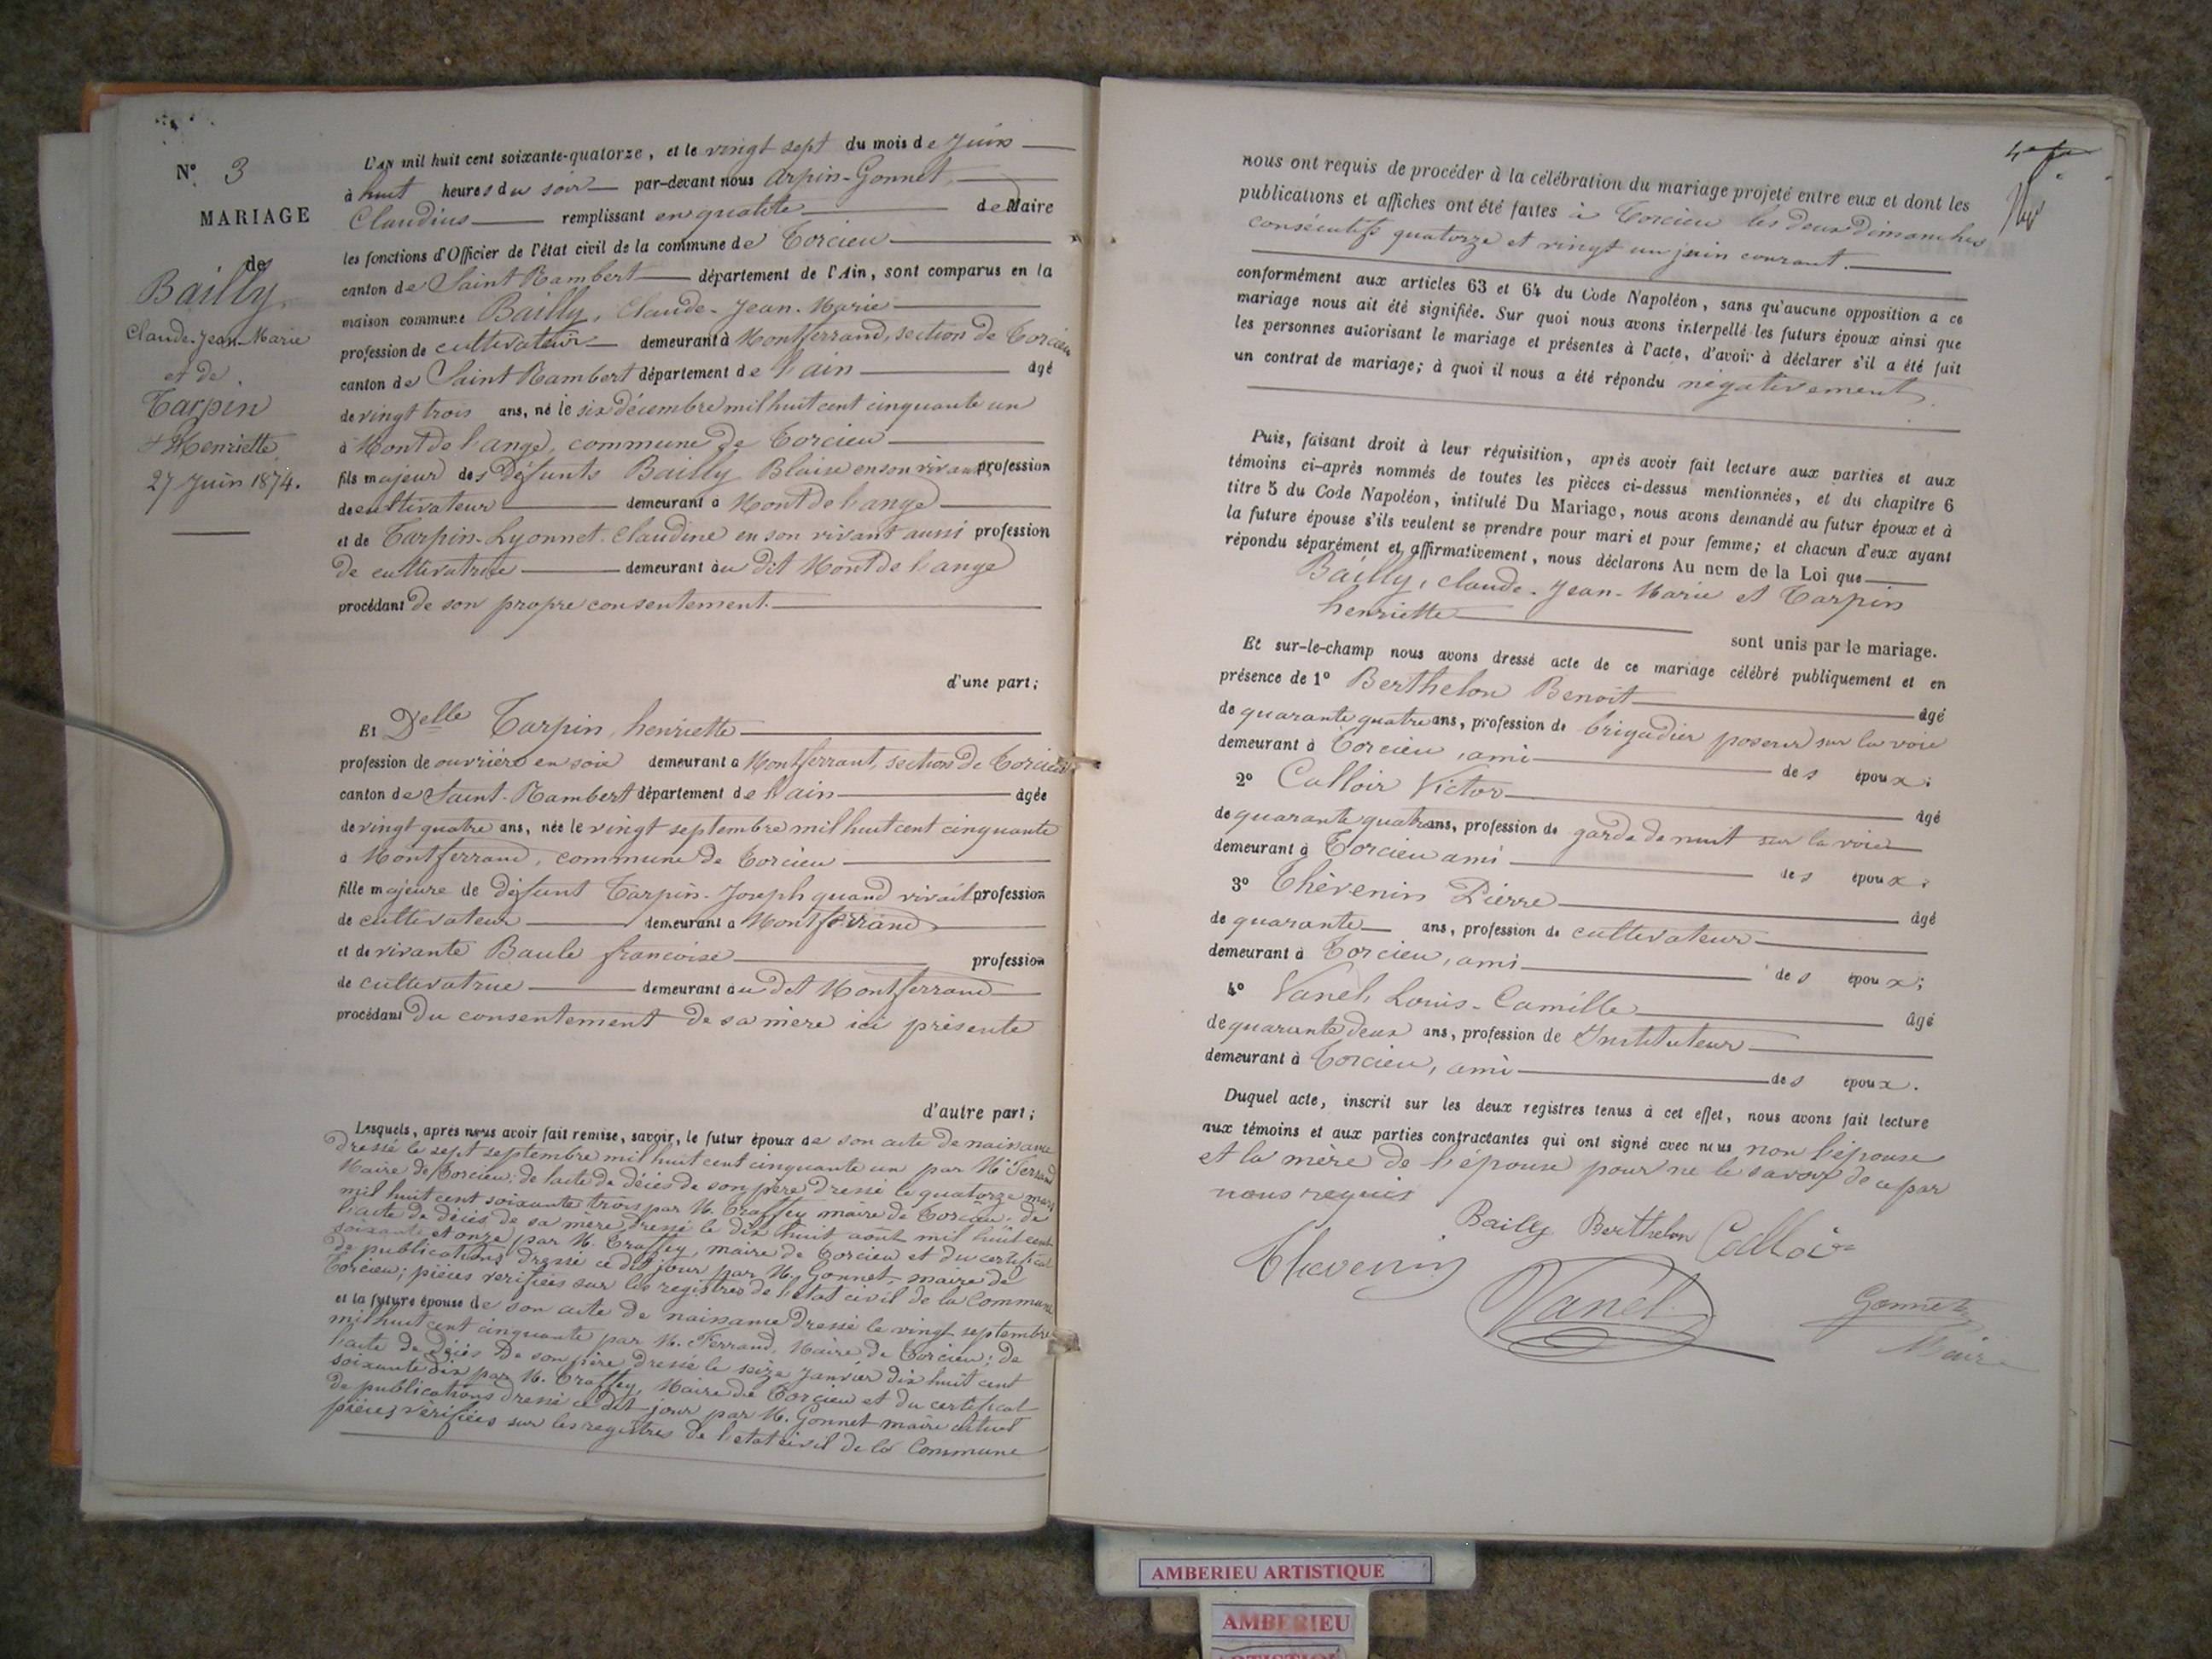 N° 3
MARIAGE
de
Bailly,
Claude-Jean-Marie
et de
Tarpin
Henriette
27 Juin 1874.
L'AN mil huit cent soixante-quatorze, et le vingt sept du mois de Juin
à huit heures du soir par-devant nous Arpin-Gonnet,
Claudius remplissant en qualité de Maire
les fonctions d'Officier de l'état civil de la commune de Torcieu
canton de Saint Rambert département de l'Ain, sont comparus en la
maison commune Bailly, Claude-Jean-Marie
profession de cultivateur demeurant à Montferrand, section de Torcieu
canton de Saint Rambert département de l'ain âgé
de vingt trois ans, né le six décembre mil huit cent cinquante un
à Mont de l'ange, commune de Torcieu
fils majeur des défunts Bailly Blaise en son vivant profession
de cultivateur demeurant à Mont de l'ange
et de Tarpin-Lyonnet Claudine en son vivant aussi profession
de cultivatrice demeurant au dit Mont de l'ange
procédant de son propre consentement.
d'une part;
Et Delle Tarpin, henriette
profession de ouvrière en soie demeurant à Montferrant, section de Torcieu
canton de Saint-Rambert département de l'ain âgée
de vingt quatre ans, née le vingt septembre mil huit cent cinquante
à Montferrand, commune de Torcieu
fille majeure de défunt Tarpin-Joseph quand vivait profession
de cultivateur demeurant à Montferrand
et de vivante Baule françoise profession
de cultivatrice demeurant au dit Montferrand
procédant du consentement de sa mère ici présente
d'autre part;
Lesquels, après nous avoir fait remise, savoir, le futur époux de son acte de naissance
dressé le sept septembre mil huit cent cinquante un par M. Ferrand
Maire de Torcieu; de l'acte de décès de son père dressé le quatorze mars
mil huit cent soixante trois par M. Traffey maire de Torcieu; de
l'acte de décès de sa mère dressé le dix huit août mil huit cent
soixante et onze par M. Traffey, maire de Torcieu et du certificat
de publications dressé ce dit jour par M. Gonnet, maire de
Torcieu; pièces vérifiées sur les registres de l'état civil de la Commune
et la future épouse de son acte de naissance dressé le vingt septembre
mil huit cent cinquante par M. Ferrand, Maire de Torcieu; de
l'acte de décès de son père dressé le seize janvier dix huit cent
soixante dix par M. Traffey, Maire de Torcieu et du certificat
de publications dressé ce dit jour par M. Gonnet maire actuel
pièces vérifiées sur les registres de l'état civil de la Commune
nous ont requis de procéder à la célébration du mariage projeté entre eux et dont les
publications et affiches ont été faites à Torcieu les deux dimanches
consécutifs quatorze et vingt un juin courant.
conformément aux articles 63 et 64 du Code Napoléon, sans qu'aucune opposition à ce
mariage nous ait été signifiée. Sur quoi nous avons interpellé les futurs époux ainsi que
les personnes autorisant le mariage et présentes à l'acte, d'avoir à déclarer s'il a été fait
un contrat de mariage; à quoi il nous a été répondu négativement.
Puis, faisant droit à leur réquisition, après avoir fait lecture aux parties et aux
témoins ci-après nommés de toutes les pièces ci-dessus mentionnées, et du chapitre 6
titre 5 du Code Napoléon, intitulé Du Mariage, nous avons demandé au futur époux et à
la future épouse s'ils veulent se prendre pour mari et pour femme; et chacun d'eux ayant
répondu séparément et affirmativement, nous déclarons Au nom de la Loi que
Bailly, Claude-Jean-Marie et Tarpin
henriette
sont unis par le mariage.
Et sur-le-champ nous avons dressé acte de ce mariage célébré publiquement et en
présence de 1° Berthelon Benoit âgé
de quarante quatre ans, profession de brigadier poseur sur la voie
demeurant à Torcieu, ami des époux;
2° Calloir Victor âgé
de quarante quatre ans, profession de garde de nuit sur la voie
demeurant à Torcieu ami des époux;
3° Thévenin Pierre âgé
de quarante ans, profession de cultivateur
demeurant à Torcieu, ami des époux;
4° Vanel, Louis-Camille âgé
de quarante deux ans, profession de Instituteur
demeurant à Torcieu, ami des époux.
Duquel acte, inscrit sur les deux registres tenus à cet effet, nous avons fait lecture
aux témoins et aux parties contractantes qui ont signé avec nous non l'épouse
et la mère de l'épouse pour ne le savoir de ce par
nous requis
Bailly Berthelon Calloir
Thevenin
Vanel
Gonnet
Maire
AMBERIEU ARTISTIQUE
AMBERIEU
ARTISTIQUE